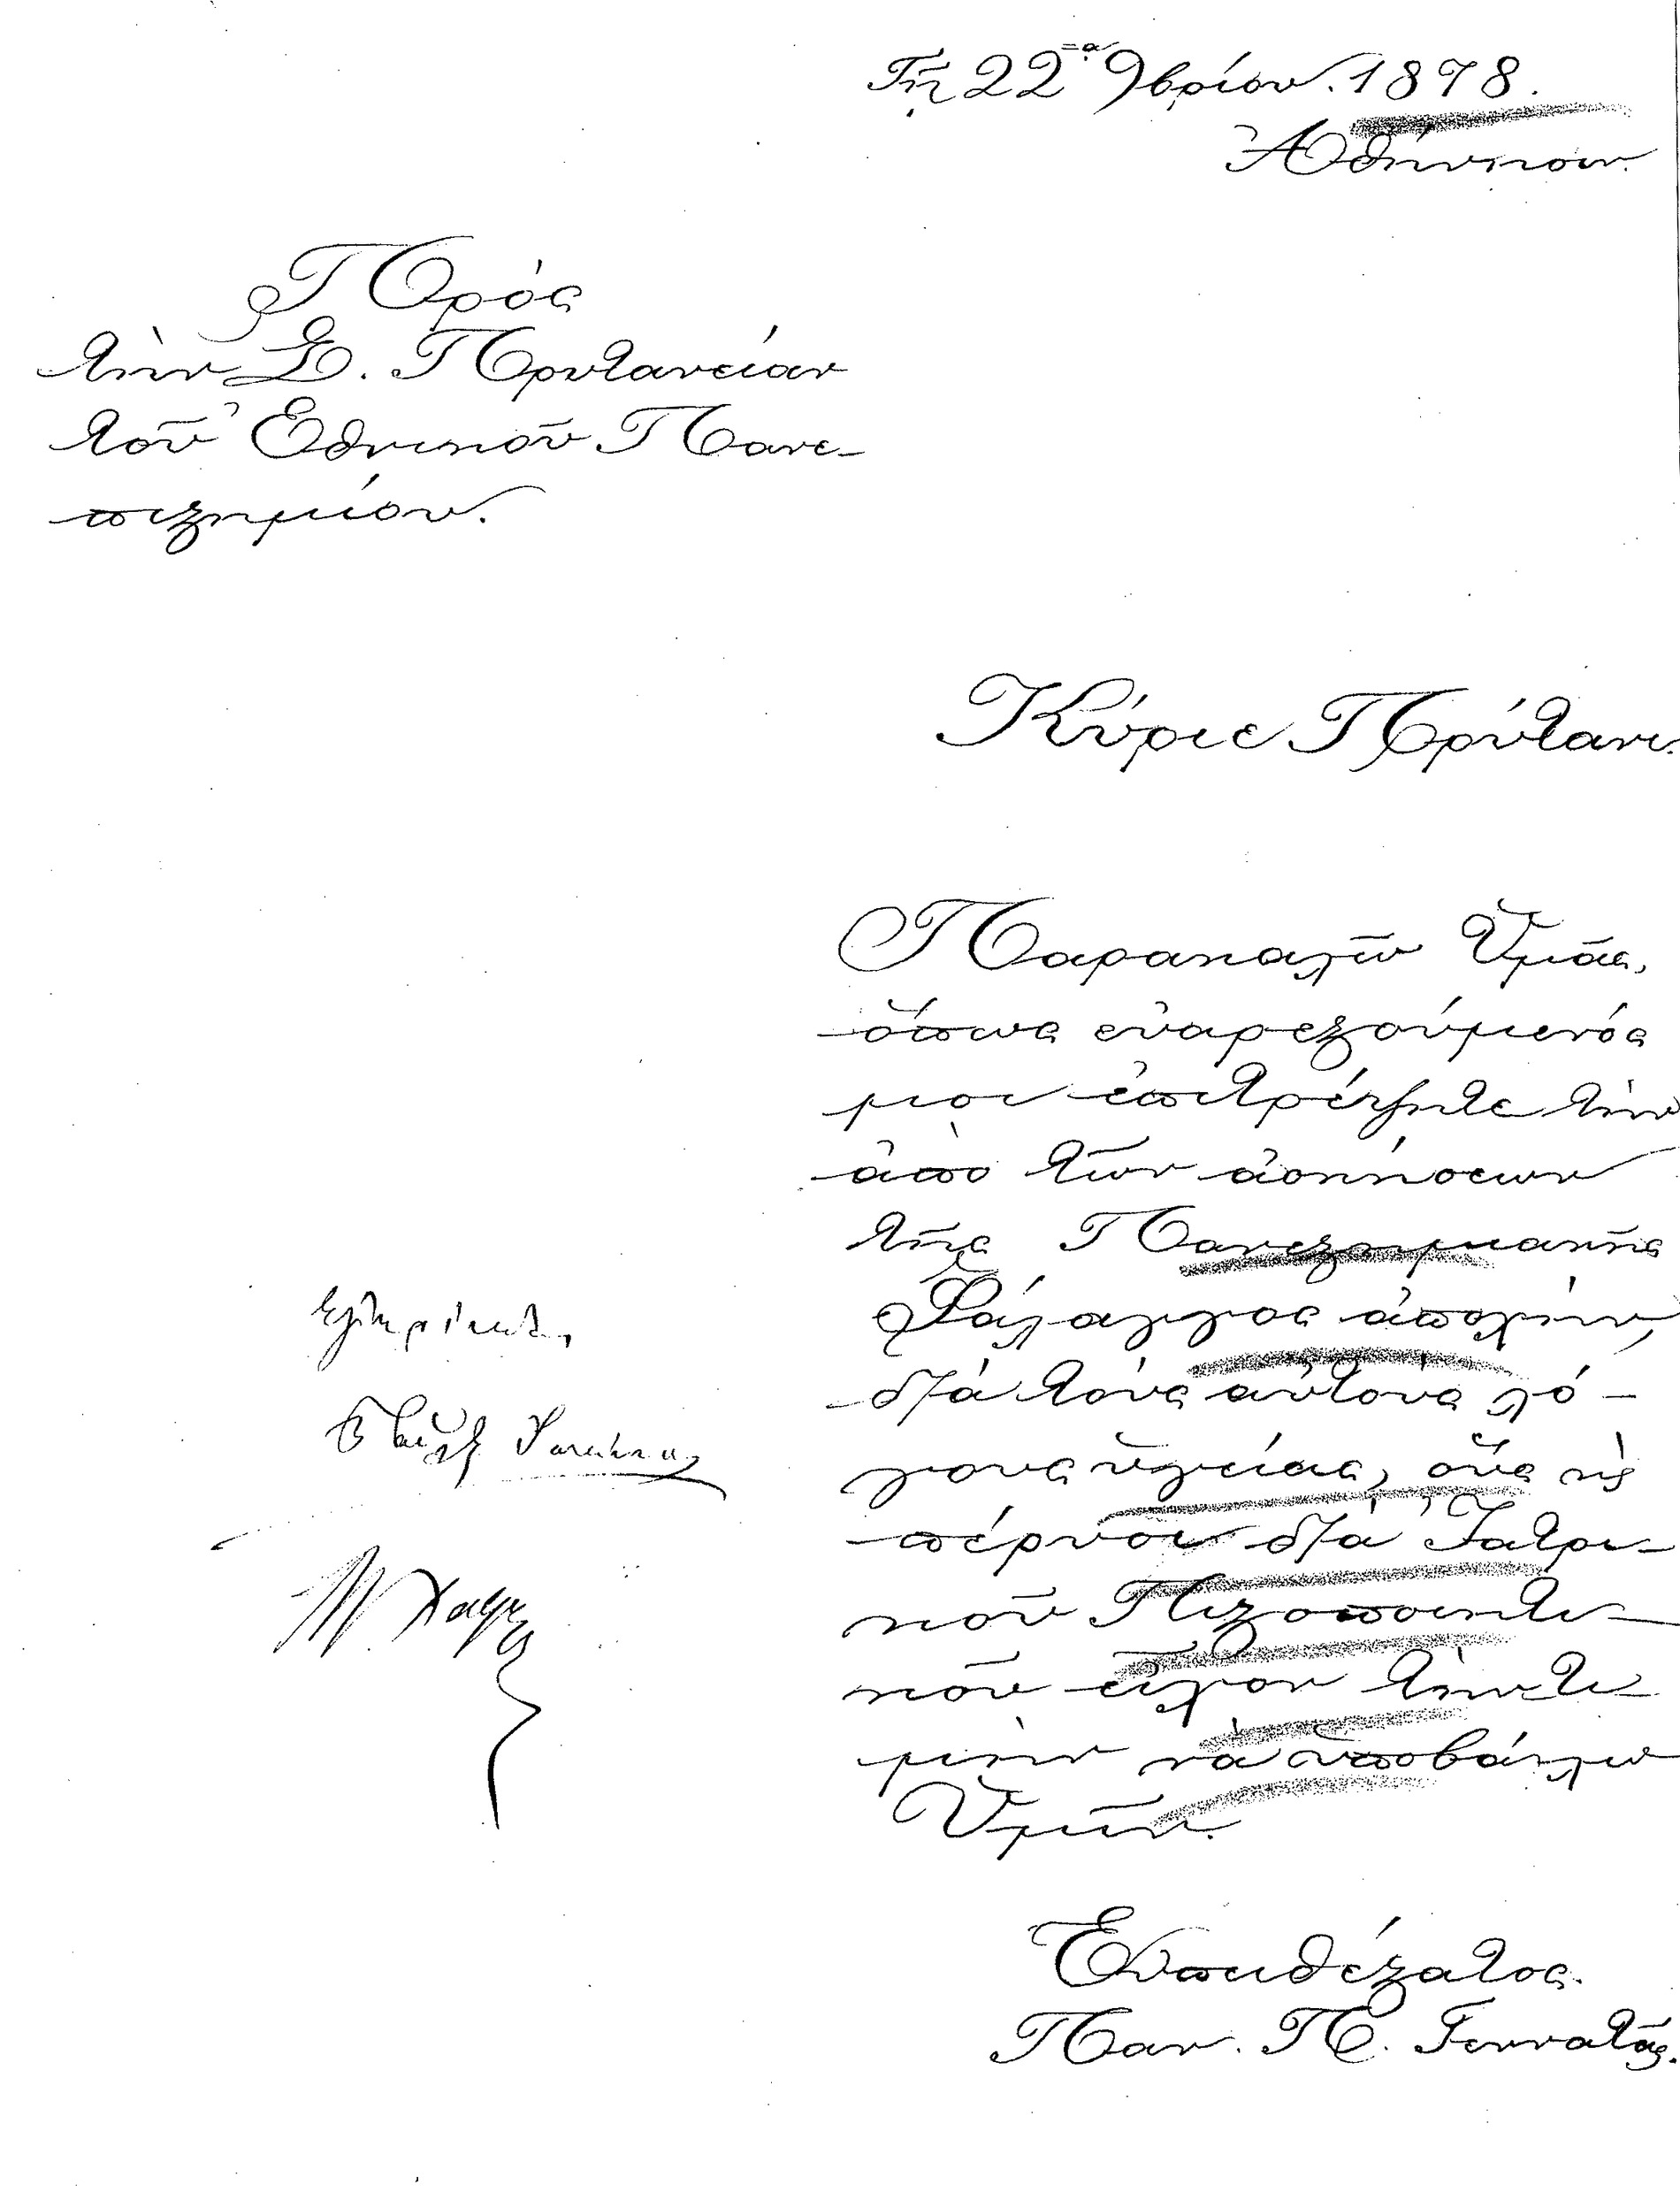 Τῇ 22ᾳ 9βρίου. 1878.
Ἀθήνησιν.
Πρὸς
τὴν Σ. Πρυτανείαν
τοῦ Ἐθνικοῦ Πανε-
πιστημίου.
Κύριε Πρύτανι.
Παρακαλῶ Ὑμᾶς,
ὅπως εὐαρεστούμενός
μοι ἐπιτρέψητε τὴν
ἀπὸ τῶν ἀσκήσεων
τῆς Πανεστημιακῆς
Φάλαγγος ἀποχήν,
διὰ τοὺς αὐτοὺς λό-
γους ὑγείας, οὓς κὶ
πέρυσι διὰ Ἰατρι-
κοῦ Πιστοποιητι-
κοῦ εἶχον τὴν τι-
μὴν νὰ ὑποβάλλω
Ὑμῖν.
Εὐπειθέστατος.
Παν. Π. Γεννατᾶς.